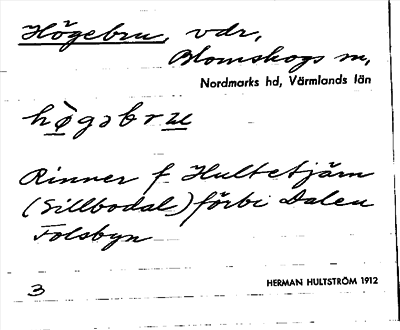 Högebru, vdr,
Blomskogs sn,
Nordmarks hd, Värmlands län
hògəbru
Rinner f. Hultetjärn
(Sillbodal) förbi Dalen
Folsbyn
3
HERMAN HULTSTRÖM 1912